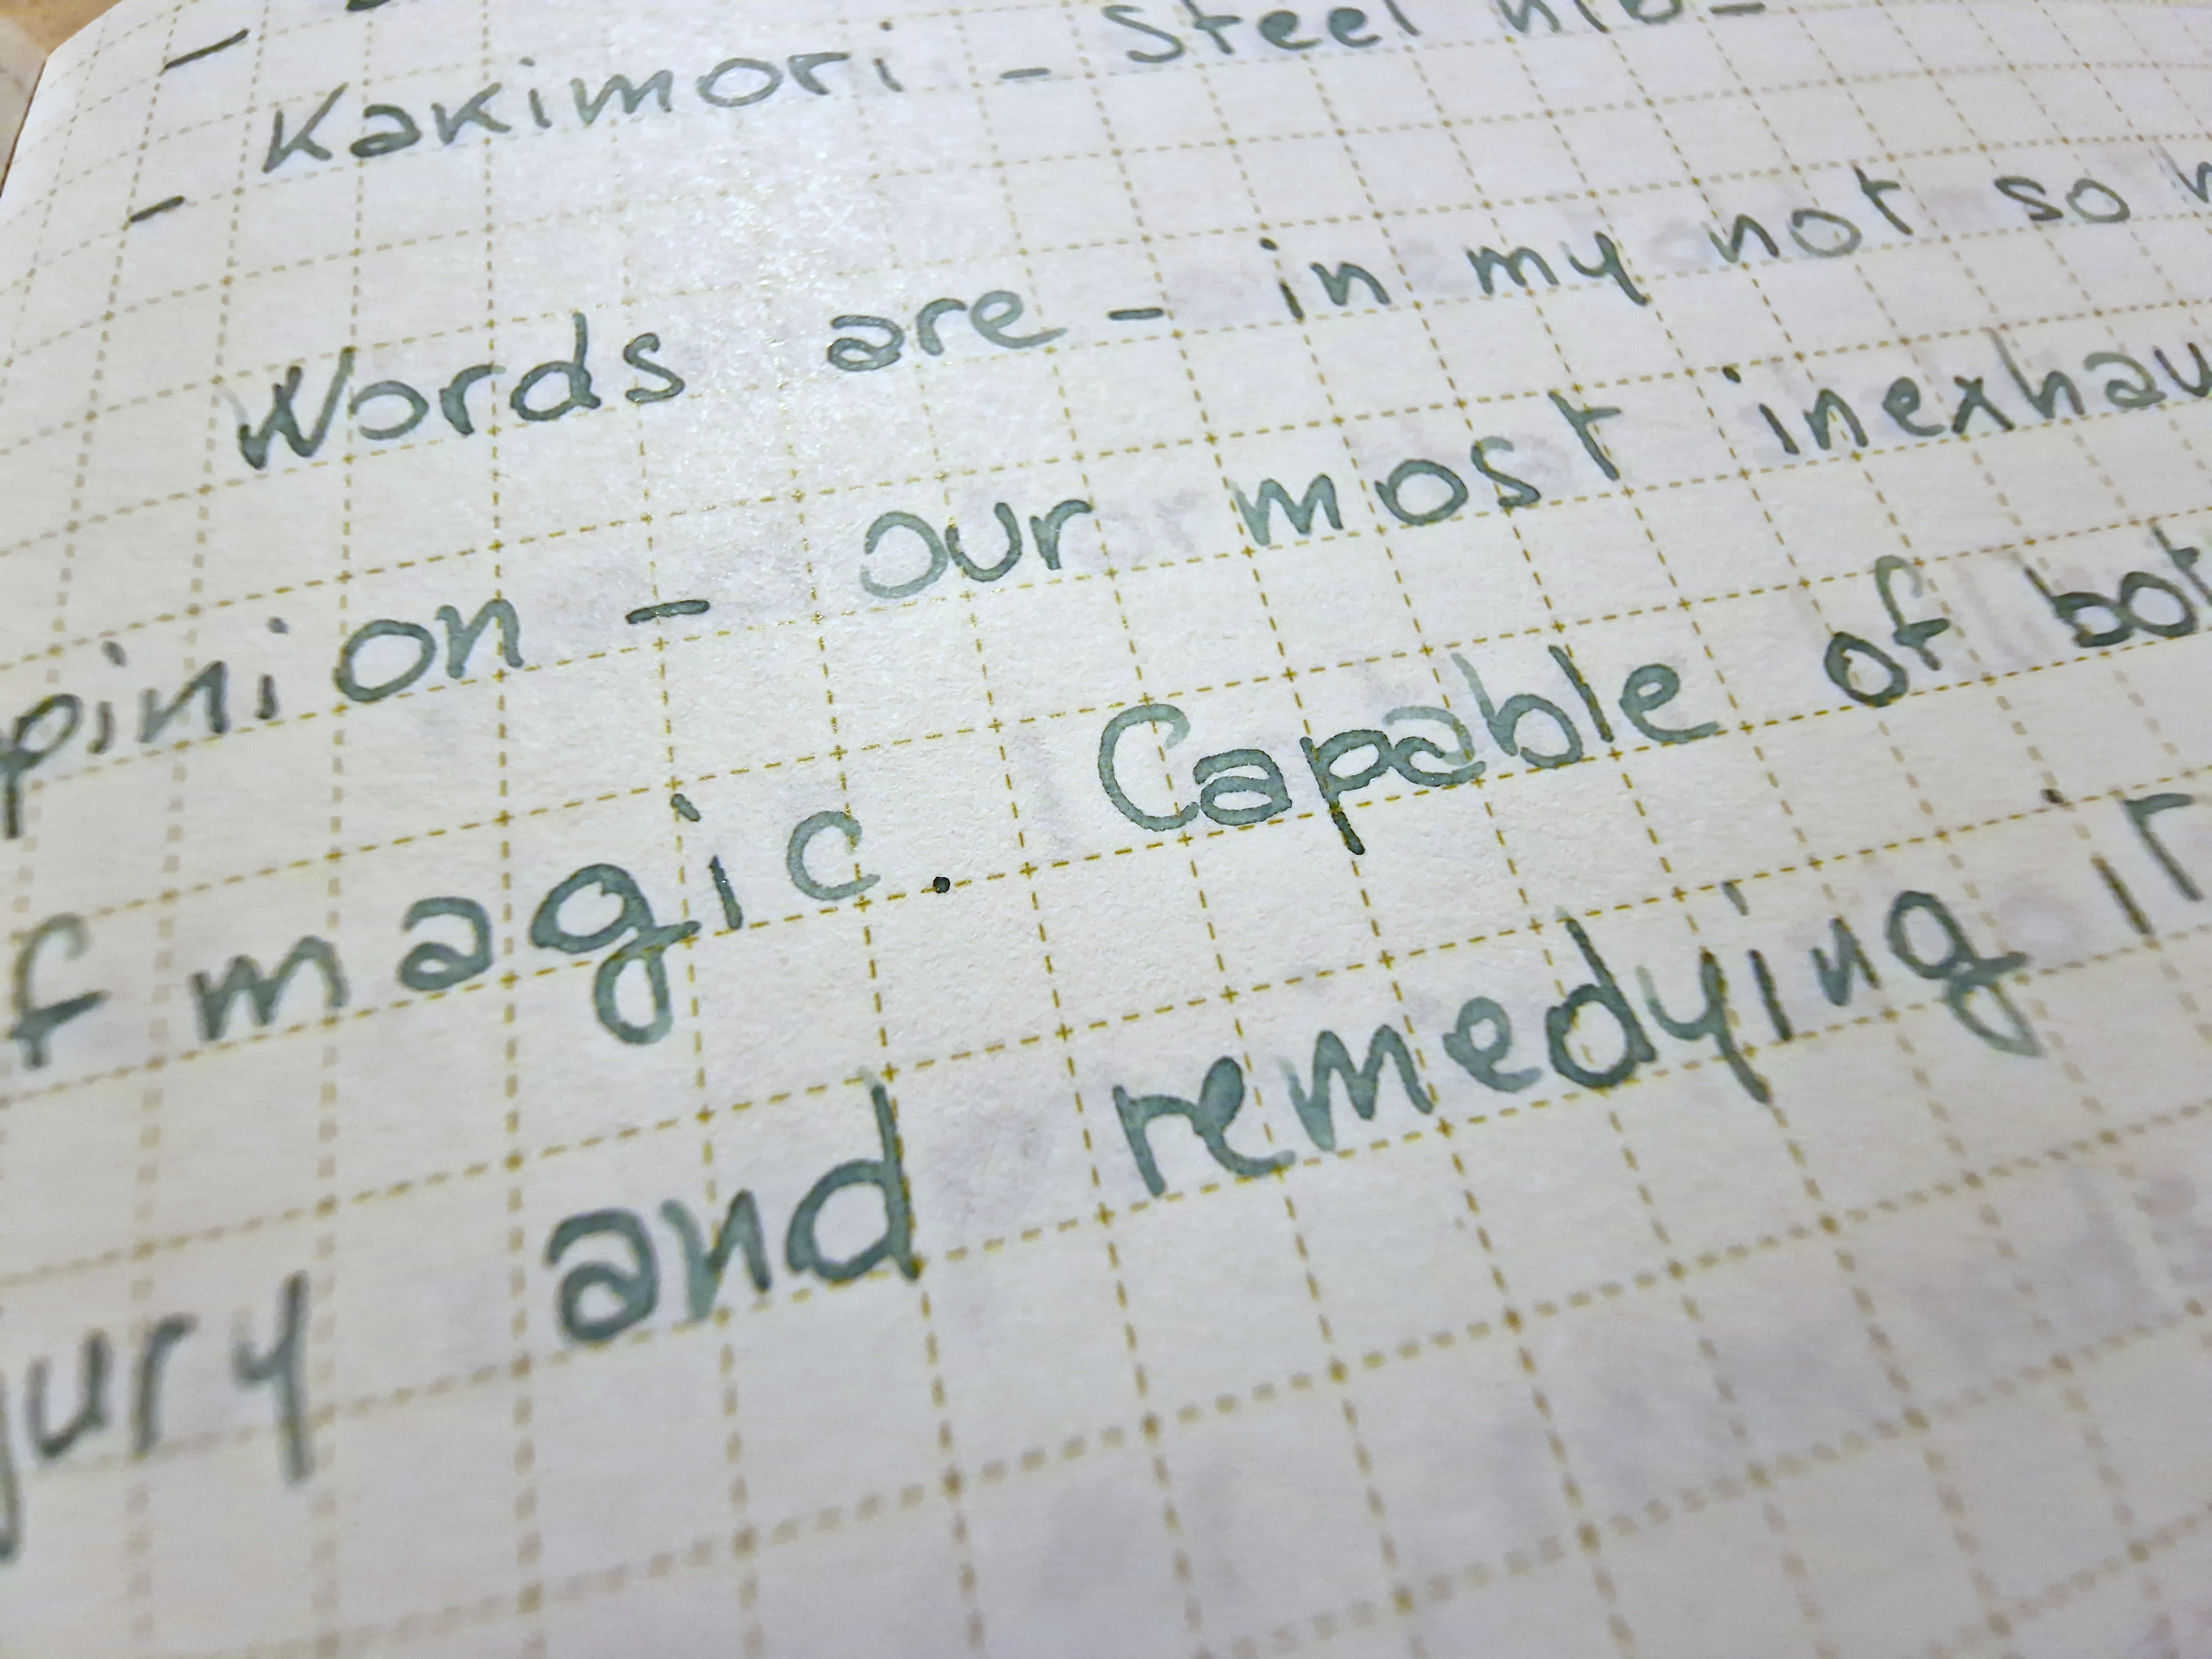 - Kakimori - Steel nib -
Words are - in my not so h
pinion - our most inexhau
f magic. Capable of bot
jury and remedying it